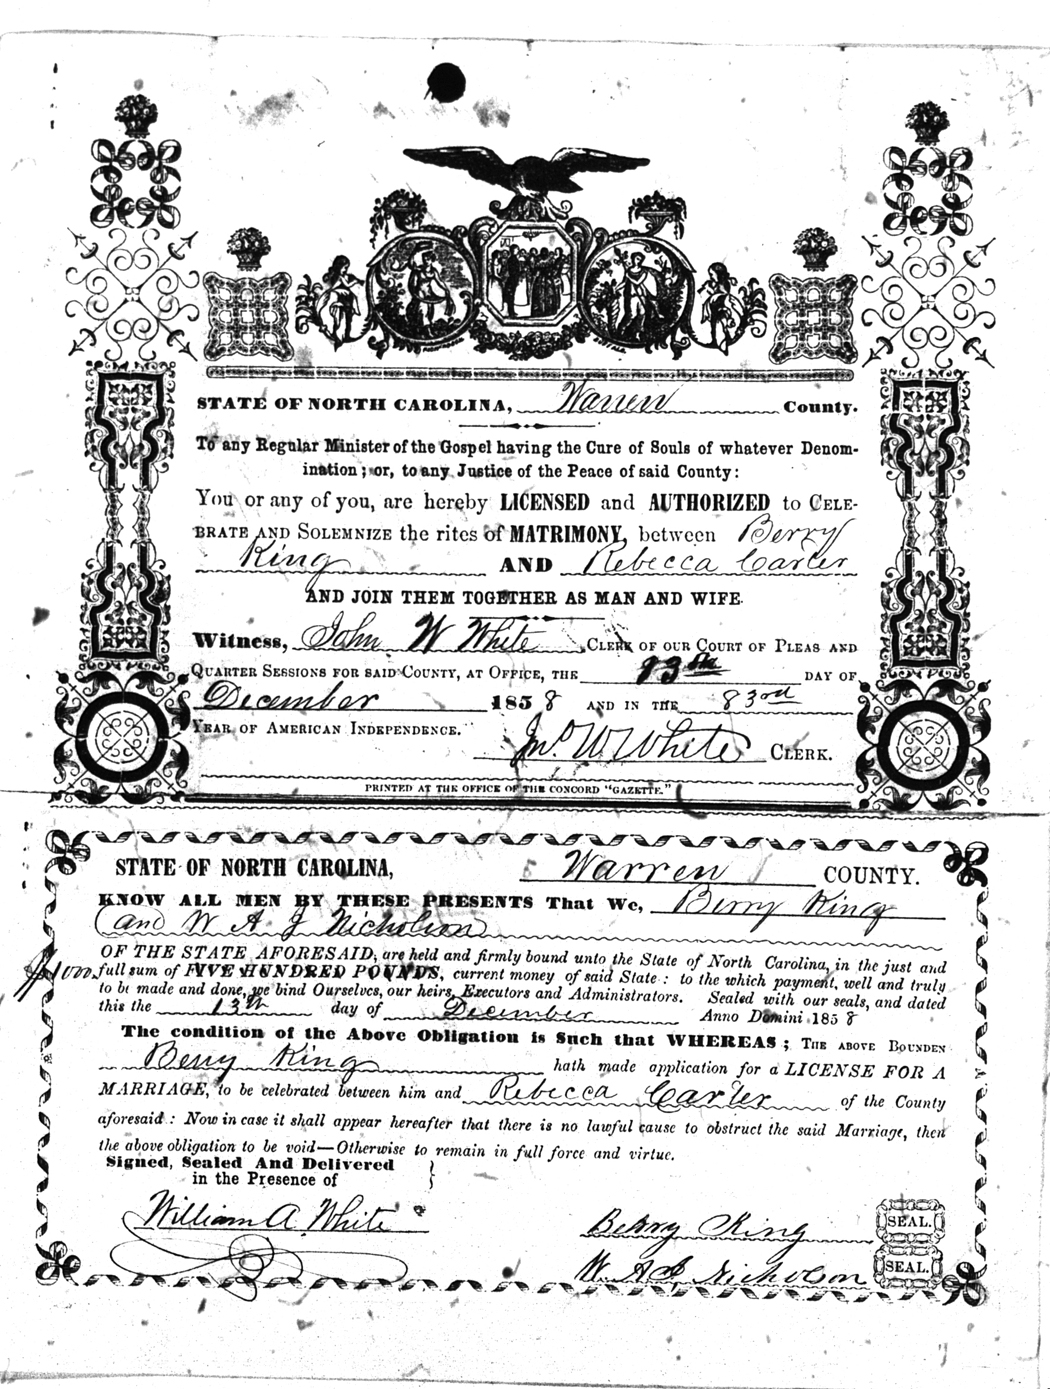 STATE OF NORTH CAROLINA, Warren County.
To any Regular Minister of the Gospel having the Cure of Souls of whatever Denom-
ination; or, to any Justice of the Peace of said County:
You or any of you, are hereby LICENSED and AUTHORIZED to CELE-
BRATE AND SOLEMNIZE the rites of MATRIMONY, between Berry
King AND Rebecca Carter
AND JOIN THEM TOGETHER AS MAN AND WIFE.
Witness, John W White CLERK OF OUR COURT OF PLEAS AND
QUARTER SESSIONS FOR SAID COUNTY, AT OFFICE, THE 13th DAY OF
December 1858 AND IN THE 83rd
YEAR OF AMERICAN INDEPENDENCE.
Jno W White CLERK.
PRINTED AT THE OFFICE OF THE CONCORD "GAZETTE."
STATE OF NORTH CAROLINA, Warren COUNTY.
KNOW ALL MEN BY THESE PRESENTS That We, Berry King
and W A J Nicholson
OF THE STATE AFORESAID, are held and firmly bound unto the State of North Carolina, in the just and
$1000 full sum of FIVE HUNDRED POUNDS, current money of said State: to the which payment, well and truly
to be made and done, we bind Ourselves, our heirs, Executors and Administrators. Sealed with our seals, and dated
this the 13th day of December Anno Domini 1858
The condition of the Above Obligation is Such that WHEREAS; THE ABOVE BOUNDEN
Berry King hath made application for a LICENSE FOR A
MARRIAGE, to be celebrated between him and Rebecca Carter of the County
aforesaid: Now in case it shall appear hereafter that there is no lawful cause to obstruct the said Marriage, then
the above obligation to be void—Otherwise to remain in full force and virtue.
Signed, Sealed And Delivered
in the Presence of
William A. White
Berry King SEAL.
W A J Nicholson SEAL.